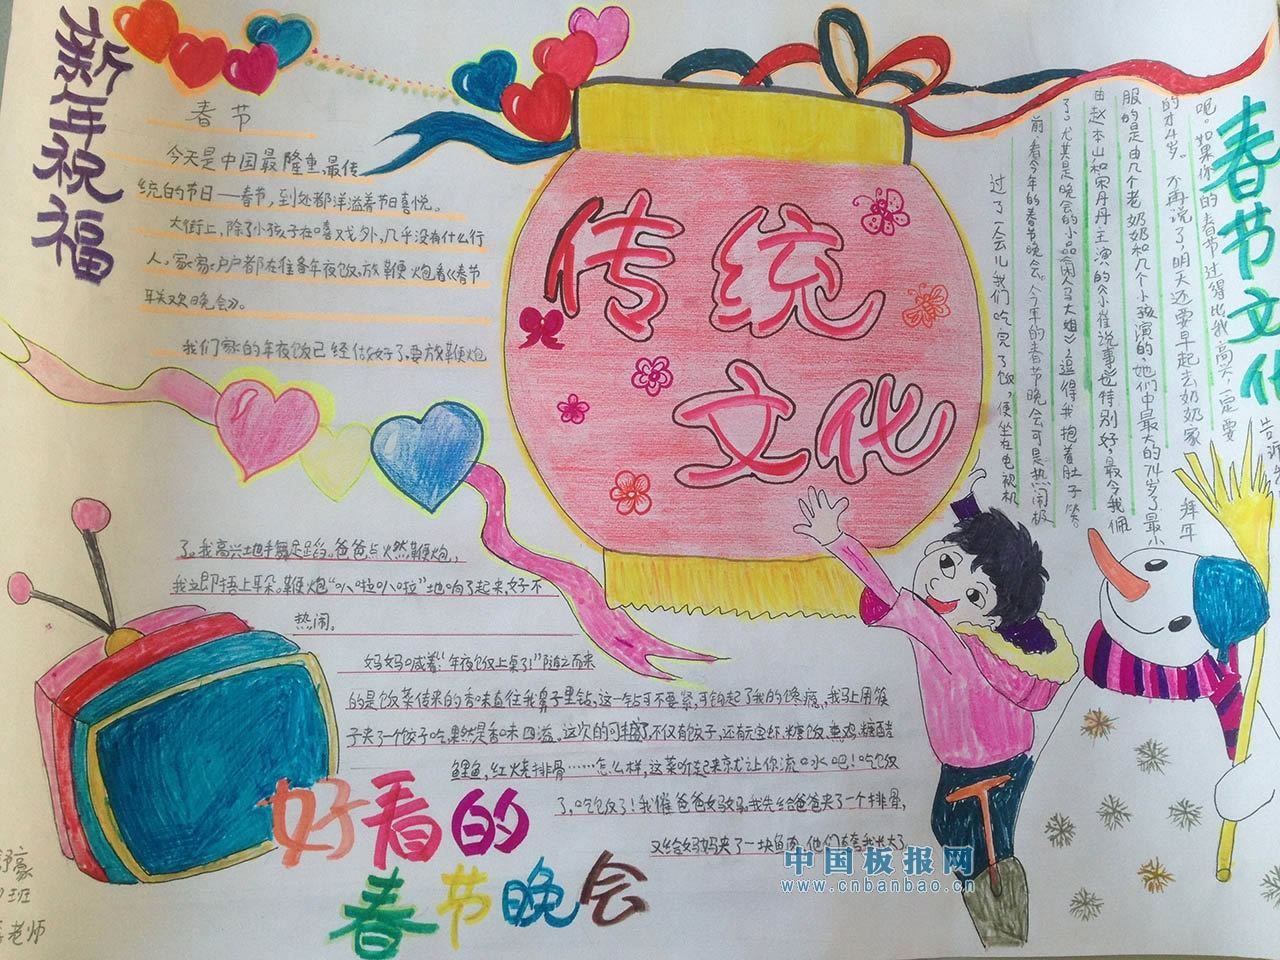 新年祝福
春节
今天是中国最隆重,最传
统的节日——春节,到处都洋溢着节日喜悦。
大街上,除了小孩子在嘻戏外,几乎没有什么行
人。家家户户都在准备年夜饭,放鞭炮看《春节
联欢晚会》。
我们家的年夜饭已经做好了,要放鞭炮
了。我高兴地手舞足蹈。爸爸点火然鞭炮,
我立即捂上耳朵。鞭炮“叭啦叭啦”地响了起来,好不
热闹。
妈妈喊着:“年夜饭上桌了!”随之而来
的是饭菜传来的香味直往我鼻子里钻,这一钻可不要紧,可勾起了我的馋瘾,我马上用筷
子夹了一个饺子吃,果然是香味四溢。这次的可丰富了,不仅有饺子,还有元宝虾、糖饭、熏鸡、糖醋
鲤鱼,红烧排骨……怎么样,这菜听起来就让你流口水吧!吃饭
了,吃饭了!我催爸爸妈妈,我先给爸爸夹了一个排骨,
又给妈妈夹了一块鱼肉,他们夸我长大了
传统
文化
过了一会儿我们吃完了饭,便坐在电视机
前,看今年的春节晚会。今年的春节晚会可是热闹极
了,尤其是晚会的小品《闲人马大姐》,逗得我抱着肚子笑
由赵本山和宋丹丹主演的《小崔说事》也特别好,最令我佩
服的是由几个老奶奶和几个小孩演的,她们中最大的74岁了最小
的才4岁。不再说了,明天还要早起去奶奶家拜年
呢。如果你的春节过得比我高兴,一定要
告诉
春节文化
好看的
春节晚会
豪
班
老师
中国板报网
www.cnbanbao.cn